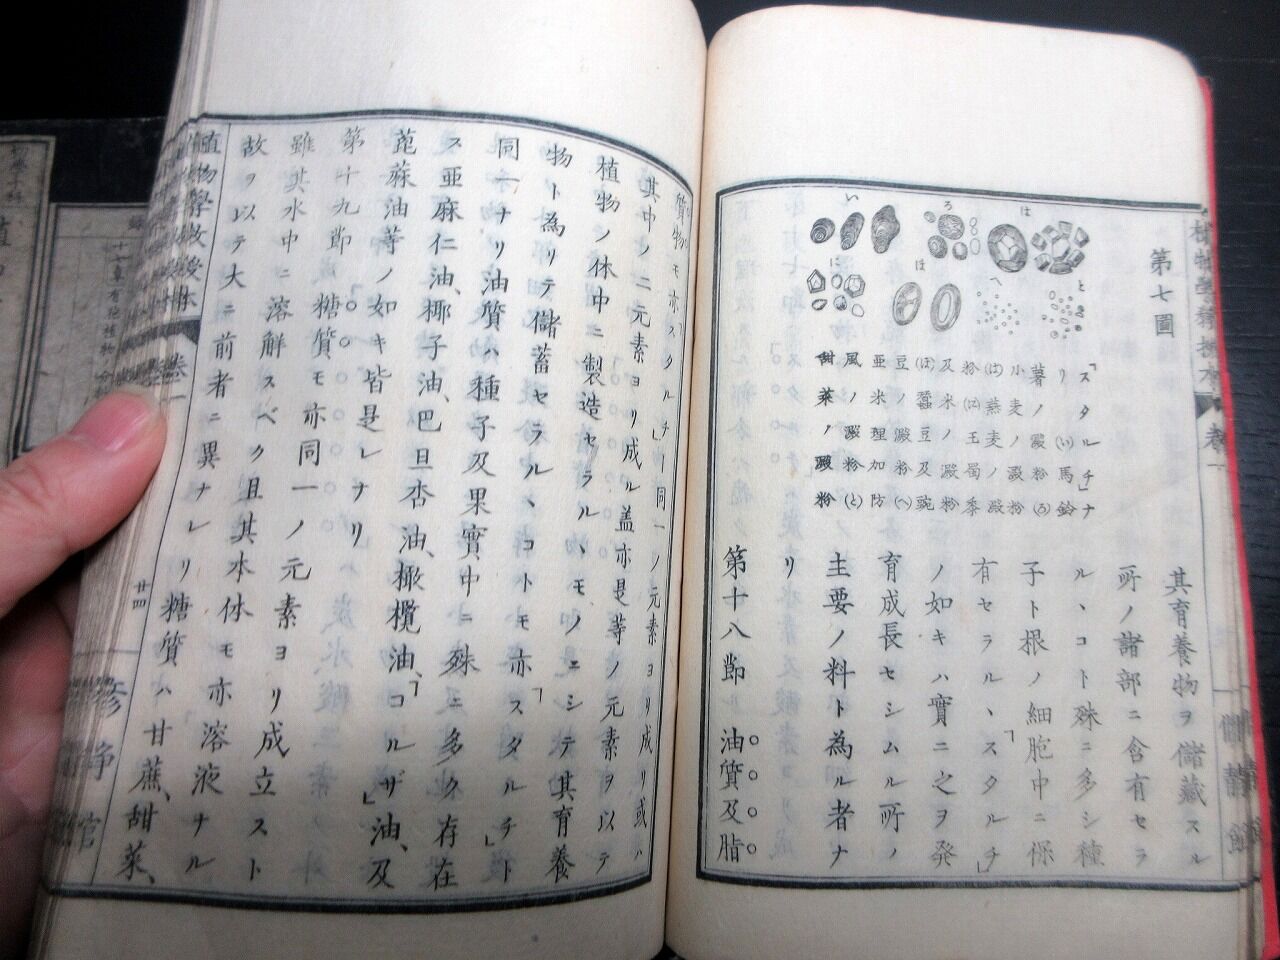 第七圖
い
ろ
は
に
ほ
へ
と
「スタルチ」ナ
リ(い)馬鈴
薯ノ澱粉(ろ)
小麦ノ澱粉
(は)燕麦ノ澱
粉(に)玉蜀黍
及米ノ澱粉
(ほ)蠶豆及豌
豆ノ澱粉(へ)
亜米理加防
風ノ澱粉(と)
甜菜ノ澱粉
其育養物ヲ儲蔵スル
所ノ諸部ニ含有セラ
ルヽコト殊ニ多シ種
子ト根ノ細胞中ニ保
有セラルヽ「スタルチ」
ノ如キハ實ニ之ヲ発
育成長セシムル所ノ
主要ノ料ト為ル者ナ
リ
第十八節 油質及脂
質物モ亦「スタルチ」ー同一ノ元素ヨリ成リ或ハ
其中ノ二元素ヨリ成ル盖亦是等ノ元素ヲ以テ
植物ノ体中ニ製造セラルヽモノニシテ其育養
物ト為リテ儲蓄セラルヽコトモ亦「スタルチ」ト
同一ナリ油質ハ種子及果實中ニ殊ニ多ク存在
ス亜麻仁油、椰子油、巴旦杏油、橄欖油、「コルザ」油、及
蓖蔴油等ノ如キ皆是レナリ
第十九節 糖質モ亦同一ノ元素ヨリ成立スト
雖其水中ニ溶解スベク且其本体モ亦溶液ナル
故ヲ以テ大ニ前者ニ異ナレリ糖質ハ甘蔗、甜菜、
植物學教授本 巻一
廿四
修静官